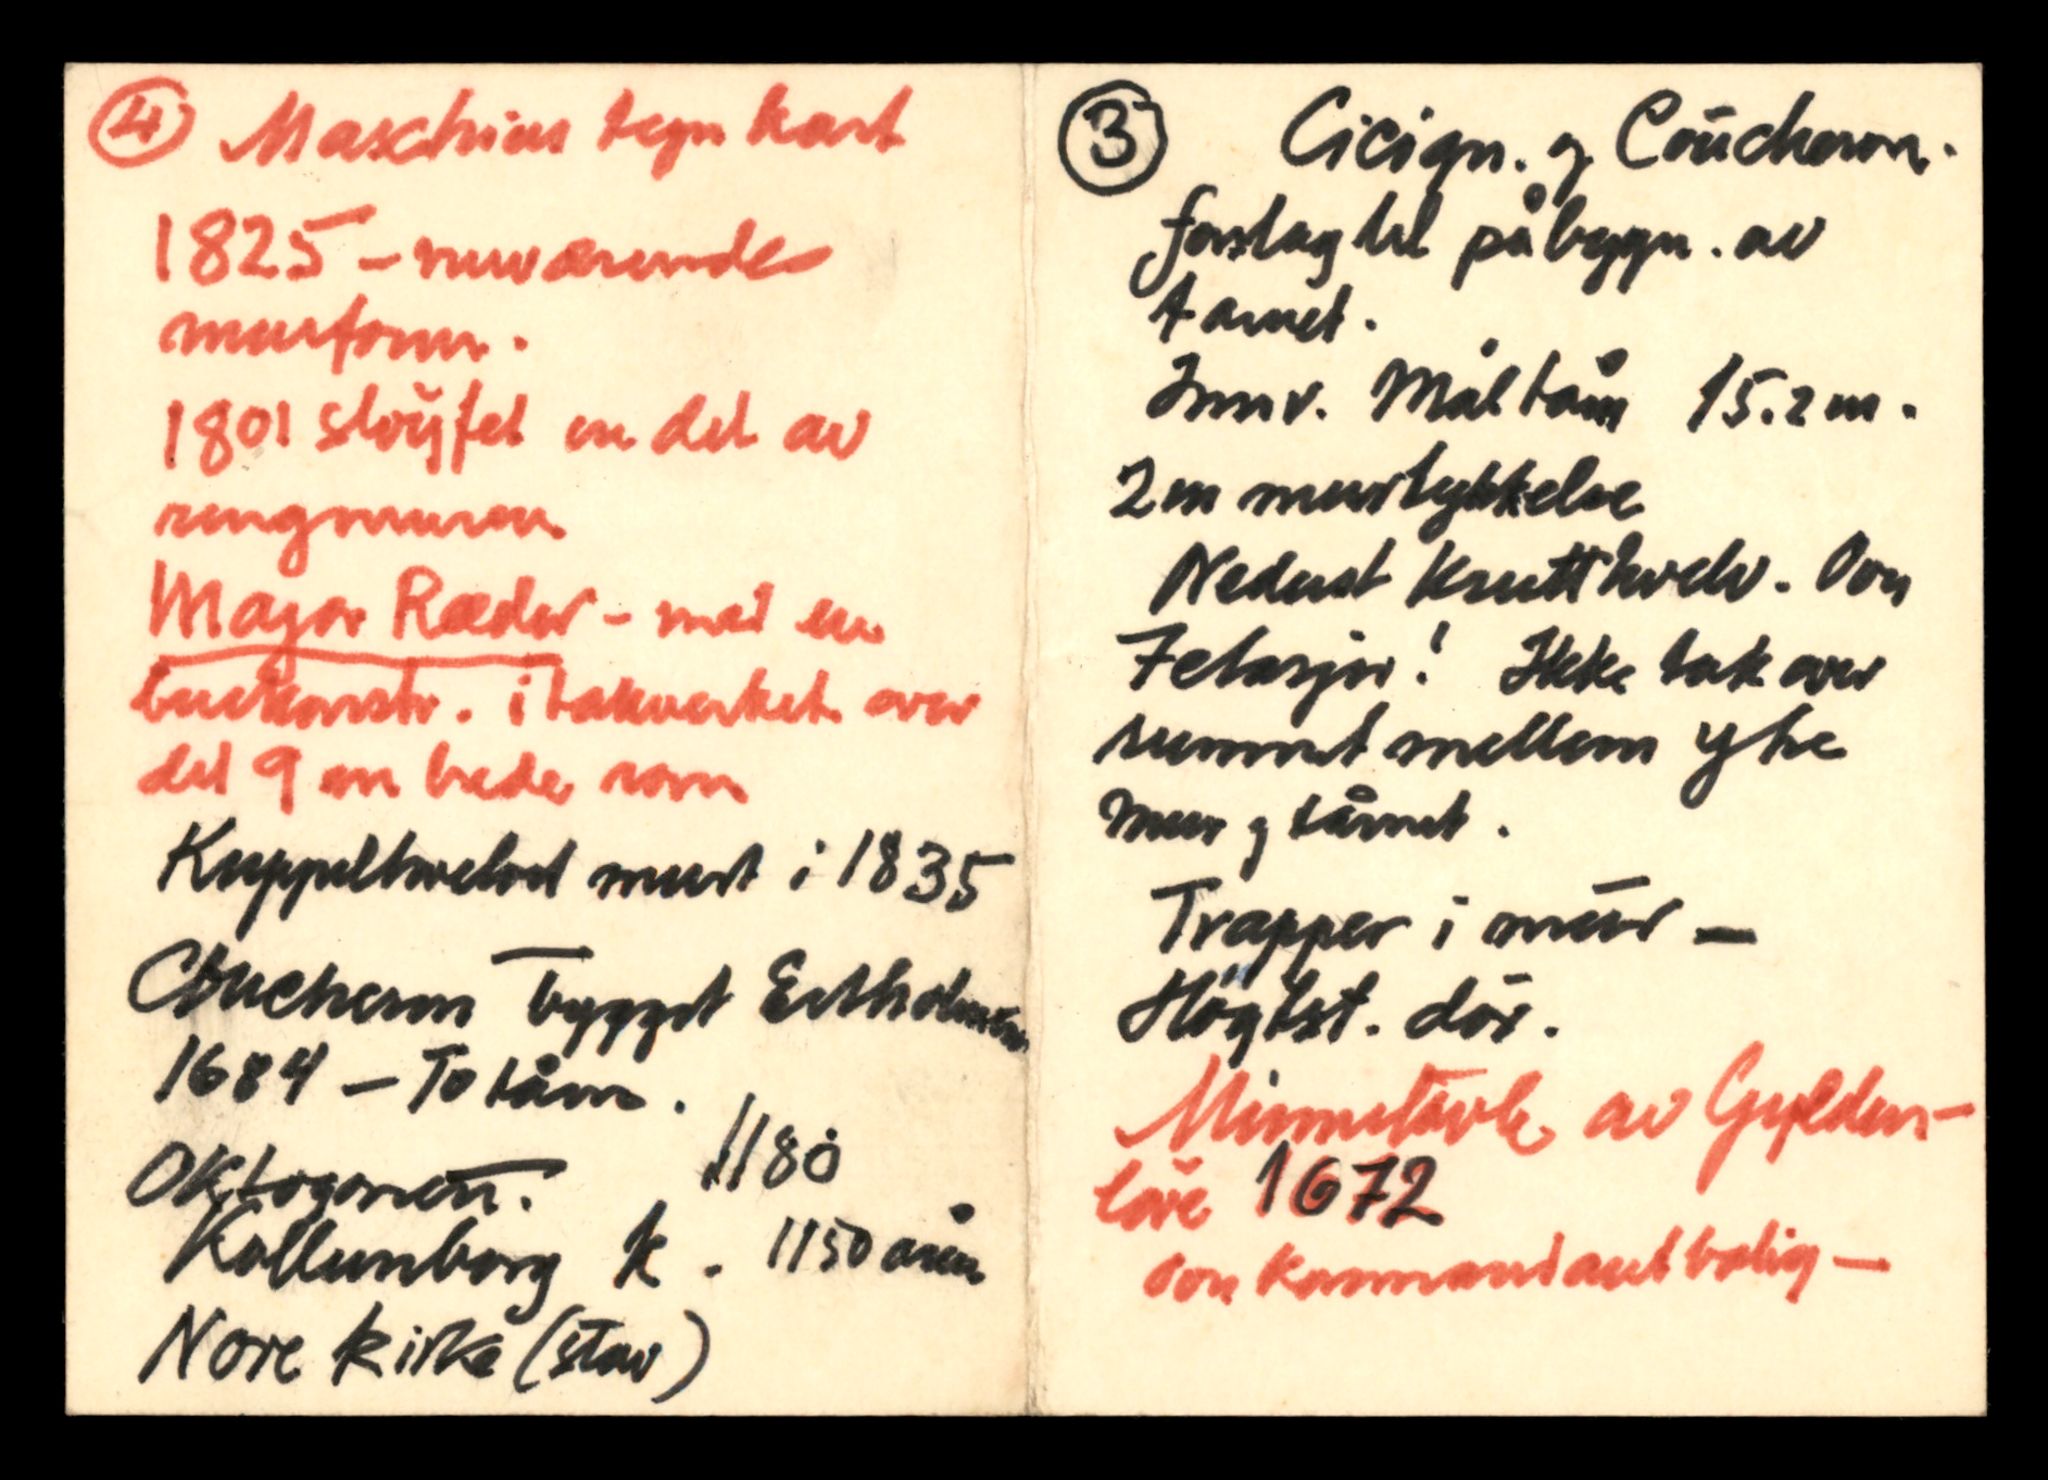 ④ Maschius tegn kart
1825 – nuværende
murform.
1801 sløyfet en del av
ringmuren
Major Ræder – med en
buekonstr. i takverket over
det 9 m brede rom
Kuppelhvelvet murt i 1835
Coucheron bygget
1684 – To tårn.
Oktogonen. 1180
Kallunborg k. 1150 åren
Nore kirke (stav)
③ Cicign. og Coucheron.
forslag til påbygn. av
tårnet.
Innv. Mål tårn 15.2 m.
2 m murtykkelse
Nederst krutthvelv. Ovn
7 etasjer! Ikke tak over
rummet mellem ytre
mur og tårnet.
Trapper i mur –
Høgtst. dör.
Minnetavle av Gylden-
löve 1672
kommandantbolig –